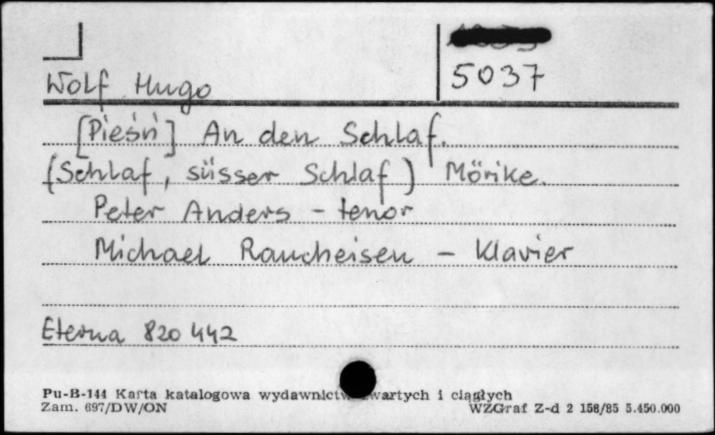 Wolf Hugo
5037
[Pieśń] An den Schlaf.
(Schlaf, süsser Schlaf) Mörike.
Peter Anders - tenor
Michael Raucheisen - Klavier
Eterna 820 442
Pu-B-144 Karta katalogowa wydawnictw zwartych i ciągłych
Zam. 697/DW/ON WZGraf Z-d 2 158/85 5.450.000